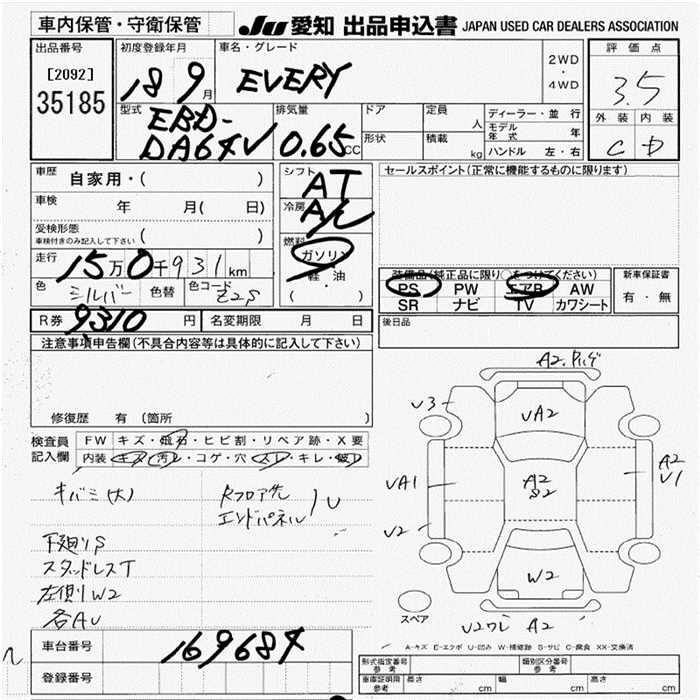 車内保管・守衛保管
JU 愛知 出品申込書 JAPAN USED CAR DEALERS ASSOCIATION
出品番号
[2092]
35185
初度登録年月
18 9月
車名・グレード
EVERY
2WD
・
4WD
評価点
3.5
外装 内装
C D
型式
EBD-
DA64V
排気量
0.65 CC
ドア
形状
定員 人
積載 kg
ディーラー・並行
モデル年式 年
ハンドル 左・右
車歴 自家用・( )
車検 年 月( 日)
受検形態
車検付きのみ記入して下さい ( )
走行 15万0千931km
色 シルバー 色替 色コード Z2S
シフト AT
冷房 A/C
燃料
ガソリン
軽・油
( )
セールスポイント(正常に機能するものに限ります)
装備品(純正品に限り○をつけてください)
PS PW エアB AW
SR ナビ TV カワシート
新車保証書
有・無
R券 9310円 名変期限 月 日
後日品
注意事項申告欄(不具合内容等は具体的に記入して下さい)
修復歴 有(箇所
検査員記入欄
FW キズ・飛石・ヒビ割・リペア跡・X要
内装 キズ・汚レ・コゲ・穴・スレ・キレ・破レ
キバミ(大)
Rフロア先
エンドパネル
U
下廻りS
スタッドレスT
左側W2
各AU
A2.
U3
UA2
UA1
A2
S2
A2
U1
U2
W2
スペア
U2ワレ A2
A-キズ E-エクボ U-凹み W-補修跡 S-サビ C-腐食 XX-交換済
車台番号 169684
登録番号
型式指定番号
参考
類別区分番号
参考
車庫証明用
参考
長さ cm
幅 cm
高さ cm